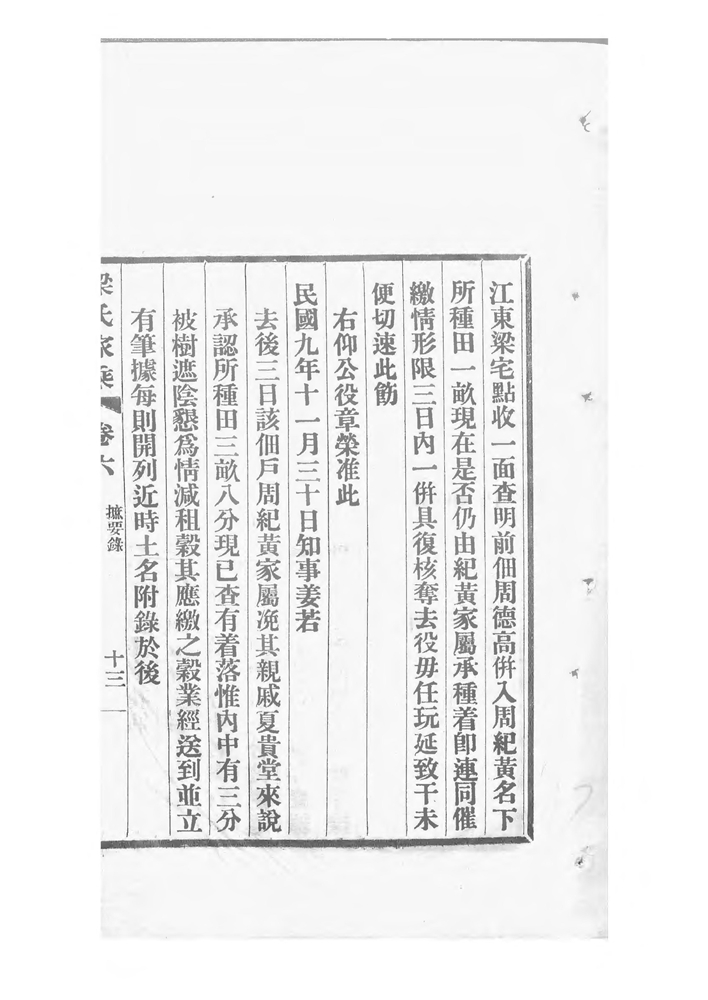 江東梁宅點收一面查明前佃周德高併入周紀黃名下
所種田一畝現在是否仍由紀黃家屬承種着卽連同催
繳情形限三日內一併具復核奪去役毋任玩延致干未
便切速此飭
右仰公役章榮准此
民國九年十一月三十日知事姜若
去後三日該佃戶周紀黃家屬浼其親戚夏貴堂來說
承認所種田三畝八分現已查有着落惟內中有三分
被樹遮陰懇爲情減租穀其應繳之穀業經送到並立
有筆據每則開列近時土名附錄於後
梁氏家乘 卷六 摭要錄 十三